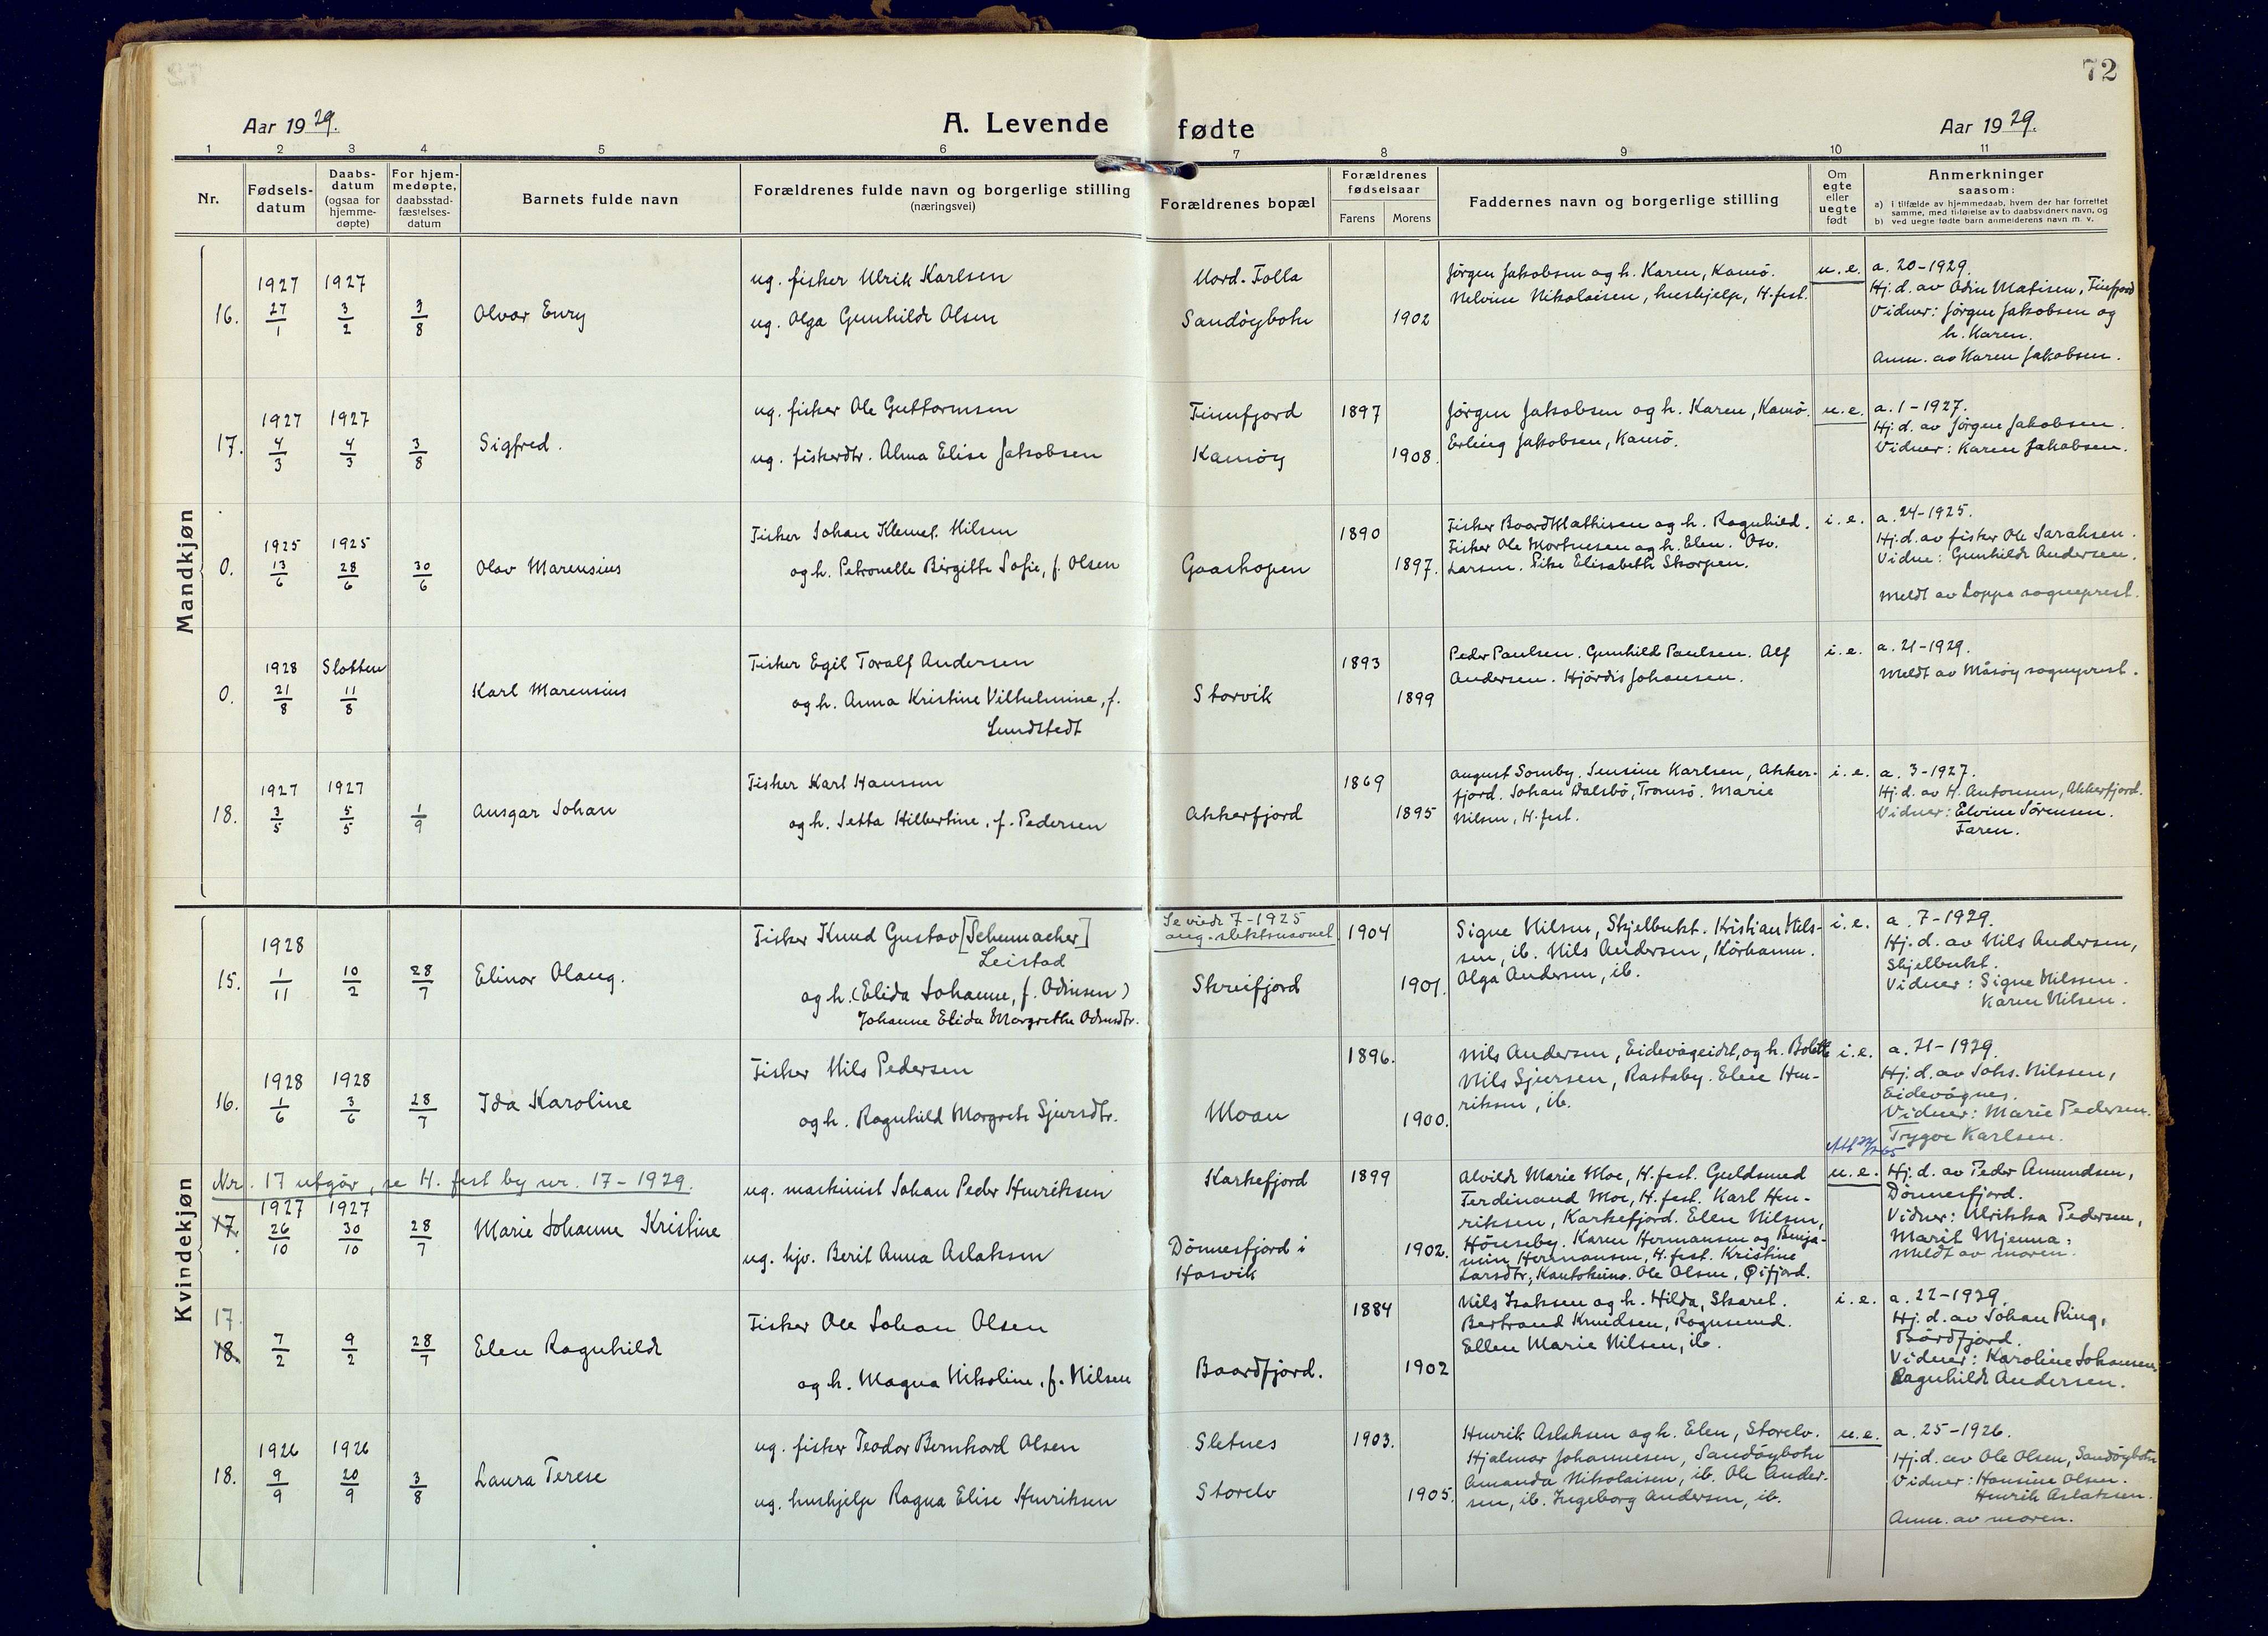 72
Aar 19 29.
A. Levende fødte
Aar 19 29.
1 2 3 4 5 6 7 8 9 10 11
Nr.
Fødsels-
datum
Daabs-
datum
(ogsaa for
hjemme-
døpte)
For hjem-
medøpte,
daabsstad-
fæstelses-
datum
Barnets fulde navn
Forældrenes fulde navn og borgerlige stilling
(næringsvei)
Forældrenes bopæl
Forældrenes
fødselsaar
Farens Morens
Faddernes navn og borgerlige stilling
Om
egte
eller
uegte
født
Anmerkninger
saasom:
a) i tilfælde av hjemmedaab, hvem der har forrettet
samme, med tilføielse av to daabsvidners navn, og
b) ved uegte fødte barn anmelderens navn m. v.
Mandkjøn
16.
1927 27/1
1927 3/2
3/8
Olvar Envy
ug. fisker Ulrik Karlsen
ug. Olga Gunhild Olsen
Nord-Folla
Sandøybotn
1902
Jørgen Jakobsen og h. Karen, Kamø.
Nelvine Nikolaisen, hushjelp, H.fest.
u. e.
a. 20-1929.
Hj. d. av Odin Matisen, Finfjord
Vidner: Jørgen Jakobsen og
h. Karen.
Anm. av Karen Jakobsen.
17.
1927 4/3
1927 4/3
3/8
Sigfred.
ug. fisker Ole Guttormsen
ug. fiskerdtr. Alma Elise Jakobsen
Finnfjord
Kamøy
1897
1908.
Jørgen Jakobsen og h. Karen, Kamø.
Erling Jakobsen, Kamø.
u. e.
a. 1-1927.
Hj. d. av Jørgen Jakobsen.
Vidner: Karen Jakobsen.
0.
1925 13/6
1925 28/6
30/6
Olav Marensius
Fisker Johan Klemet Nilsen
og h. Petronelle Birgitte Sofie, f. Olsen
Gaashopen
1890
1897.
Fisker Baard Mathisen og h. Ragnhild.
Fisker Ole Mortensen og h. Elen. Osv.
Larsen. Pike Elisabeth Skorpen.
i. e.
a. 24-1925.
Hj. d. av fisker Ole Sarahsen.
Vidne: Gunhild Andersen.
Meldt av Loppa sogneprest.
0.
1928 21/8
Slotten 11/8
Karl Marensius
Fisker Egil Toralf Andersen
og h. Anna Kristine Vilhelmine, f.
Lundstedt
Storvik
1893
1899
Peder Paulsen. Gunhild Paulsen. Alf
Andersen. Hjördis Johansen.
i. e.
a. 21-1929.
Meldt av Måsøy sogneprest.
18.
1927 3/5
1927 5/5
1/9
Ansgar Johan
Fisker Karl Hansen
og h. Jetta Hilbertine, f. Pedersen
Akkerfjord
1869
1895
August Somby. Jensine Karlsen, Akker-
fjord. Johan Dalsbö, Tromsö. Marie
Nilsen, H.fest.
i. e.
a. 3-1927.
Hj. d. av H. Antonsen, Akkerfjord.
Vidner: Elvine Sørensen.
Faren.
Kvindekjøn
15.
1928 1/11
10/2
28/7
Elinor Olaug.
Fisker Knud Gustav [Schumacher]
Leistad
og h. (Elida Johanne, f. Odinsen)
Johanne Elida Margrethe Odinsdtr.
Se viede 7-1925
ang. slektsnavnet.
Skreifjord
1904
1901.
Signe Nilsen, Skjelbukt. Kristian Nils-
sen, ib. Nils Andersen, Körhamn.
Olga Andersen, ib.
i. e.
a. 7-1929.
Hj. d. av Nils Andersen,
Skjelbukt.
Vidner: Signe Nilssen.
Karen Nilsen.
16.
1928 1/6
1928 3/6
28/7
Ida Karoline
Fisker Nils Pedersen
og h. Ragnhild Margrete Sjursdtr.
Moan
1896.
1900.
Nils Andersen, Eidevågeidet, og h. Bolette
Nils Sjursen, Rastaby. Elen Hen-
riksen, ib.
i. e.
a. 21-1929.
Hj. d. av Johs. Nilssen,
Eidevågnes.
Vidner: Marie Pedersen.
Trygve Karlsen.
Nr. 17 utgår, se H. fest by nr. 17-1929.
17.
1927 26/10
1927 30/10
28/7
Marie Johanne Kristine
ug. maskinist Johan Peder Henriksen
ug. hjv. Beril Anna Aslaksen
Karkefjord
Dönnesfjord i
Hasvik
1899
1902.
Alvild Marie Moe, H.fest. Guldsmed
Ferdinand Moe, H.fest. Karl Hen-
riksen, Karkefjord. Elen Nilsen,
Hönseby. Karen Hermansen og Benja-
min Hermansen, H.fest. Kristine
Larsdtr, Kautokeino. Ole Olsen, Øifjord.
u. e.
Hj. d. av Peder Amundsen,
Dönnesfjord.
Vidner: Ulrikka Pedersen,
Marit Mienna.
Meldt av moren.
17.
18.
7/2
9/2
28/7
Elen Ragnhild
Fisker Ole Johan Olsen
og h. Magna Nikoline, f. Nilsen
Baardfjord.
1884
1902
Nils Isaksen og h. Hilda, Skaret.
Bertrand Knudsen, Rognsund.
Ellen Marie Nilsen, ib.
i. e.
a. 22-1929.
Hj. d. av Johan Ring,
Bårdfjord.
Vidner: Karoline Johansen,
Ragnhild Andersen.
18.
1926 9/9
1926 20/9
3/8
Laura Terese
ug. fisker Teodor Bernhard Olsen
ug. hushjelp Ragna Elise Henriksen
Sletnes
Storelv
1903.
1905.
Henrik Aslaksen og h. Elen, Storelv.
Hjalmar Johannesen, Sandöybotn
Amanda Nikolaisen, ib. Ole Ander-
sen, ib. Ingeborg Andersen, ib.
u. e.
a. 25-1926.
Hj. d. av Ole Olsen, Sandöybotn
Vidner: Hansine Olsen.
Henrik Aslaksen.
Anm. av moren.